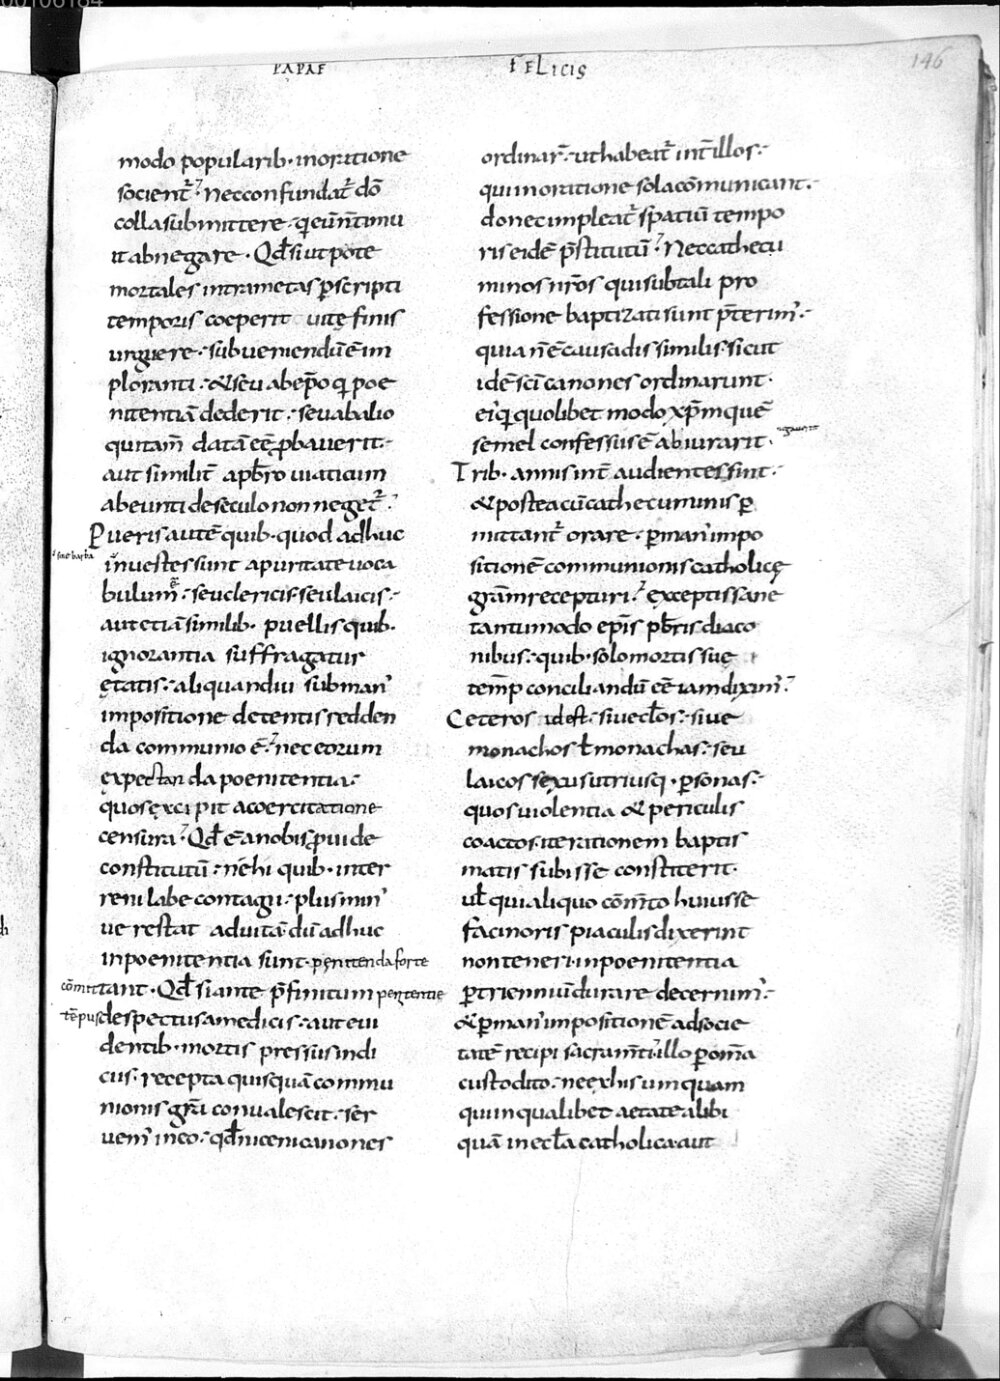 00106184
PAPAE FELICIS
146
modo popularib· inoratione
socient᷑. Necconfundat᷑ dō
collasubmittere· qēūn̄timu
it abnegare· Qd̄siutpote
mortales intrametas p̱scripti
temporis coeperit uitę finis
urguere· subueniendūēim
ploranti· &seu abep̄o q poe
nitentiā dederit· seuabalio
quitam̄ datāeē ꝓbauerit·
aut similit̄ apb̄ro uiaticum
abeunti deseculo non neget᷑·
Pueris autē quib· quod adhuc
inuestes sunt apuritate uoca
bulum̄· seuclericis seulaicis·
aut etiā similib· puellis quib·
ignorantia suffragatur
ętatis· aliquandiu submań
impositione detentis redden
da communio ē· nec eorum
expectan da poenitentia·
quos excipit acoercitatione
censura· Qd̄ eā nobis ꝓuide
constitutū· nehi quib· inter
reni labe contagii· plus miń
ue restat aduitā· dū adhuc
inpoenitentia sunt· penitenda forte
cōmittant· Qd̄ siante p̄finitum penitentie
tēpus despectus amedicis· aut eui
dentib· mortis pressus indi
ciis· recepta quisquā commu
nionis grā̄ conualescit· ser
uem̄ ineo· qd̄ niceni canones
ordinar̄· ut habeat᷑ int̄illos·
qui inoratione sola cōmunicant·
donec impleat᷑ spatiū tempo
ris eidē p̄stitutū· Neccathecu
minos nr̄os qui subtali pro
fessione baptizati sunt p̄terim̄·
quia n̄ ē causa dissimilis· sicut
idē sc̄i canones ordinarunt·
ei q quolibet modo xp̄m quē
semel confessus ē abiurarit·
Trib· annis int̄ audientes sint·
& postea cū cathecuminis ꝑ
mittant᷑ orare· ꝑ mań impo
sitionē communionis catholicę
grām recepturi· exceptis sane
tantūmodo ep̄is pb̄ris diaco
nibus· quib· solo mortis suę
temp̄ conciliandū eē iam dixim̄·
Ceteros idest· siue cl̄os· siue
monachos ł monachas· seu
laicos sexus utriusq· ꝑsonas·
quos uiolentia & periculis
coactos iteritionem baptis
matis subisse constiterit·
uł qui aliquo cōm̄to huiusse
facinoris piaculis dixerint
non teneri· inpoenitentia
ꝑ triennium durare decernim̄·
& ꝑ mań impositionē ad socie
tatē recipi sacram̄ti· illo ꝑ om̄a
custodito· ne ex his umquam
qui in qualibet aetate alibi
quā in ecl̄a catholica· aut